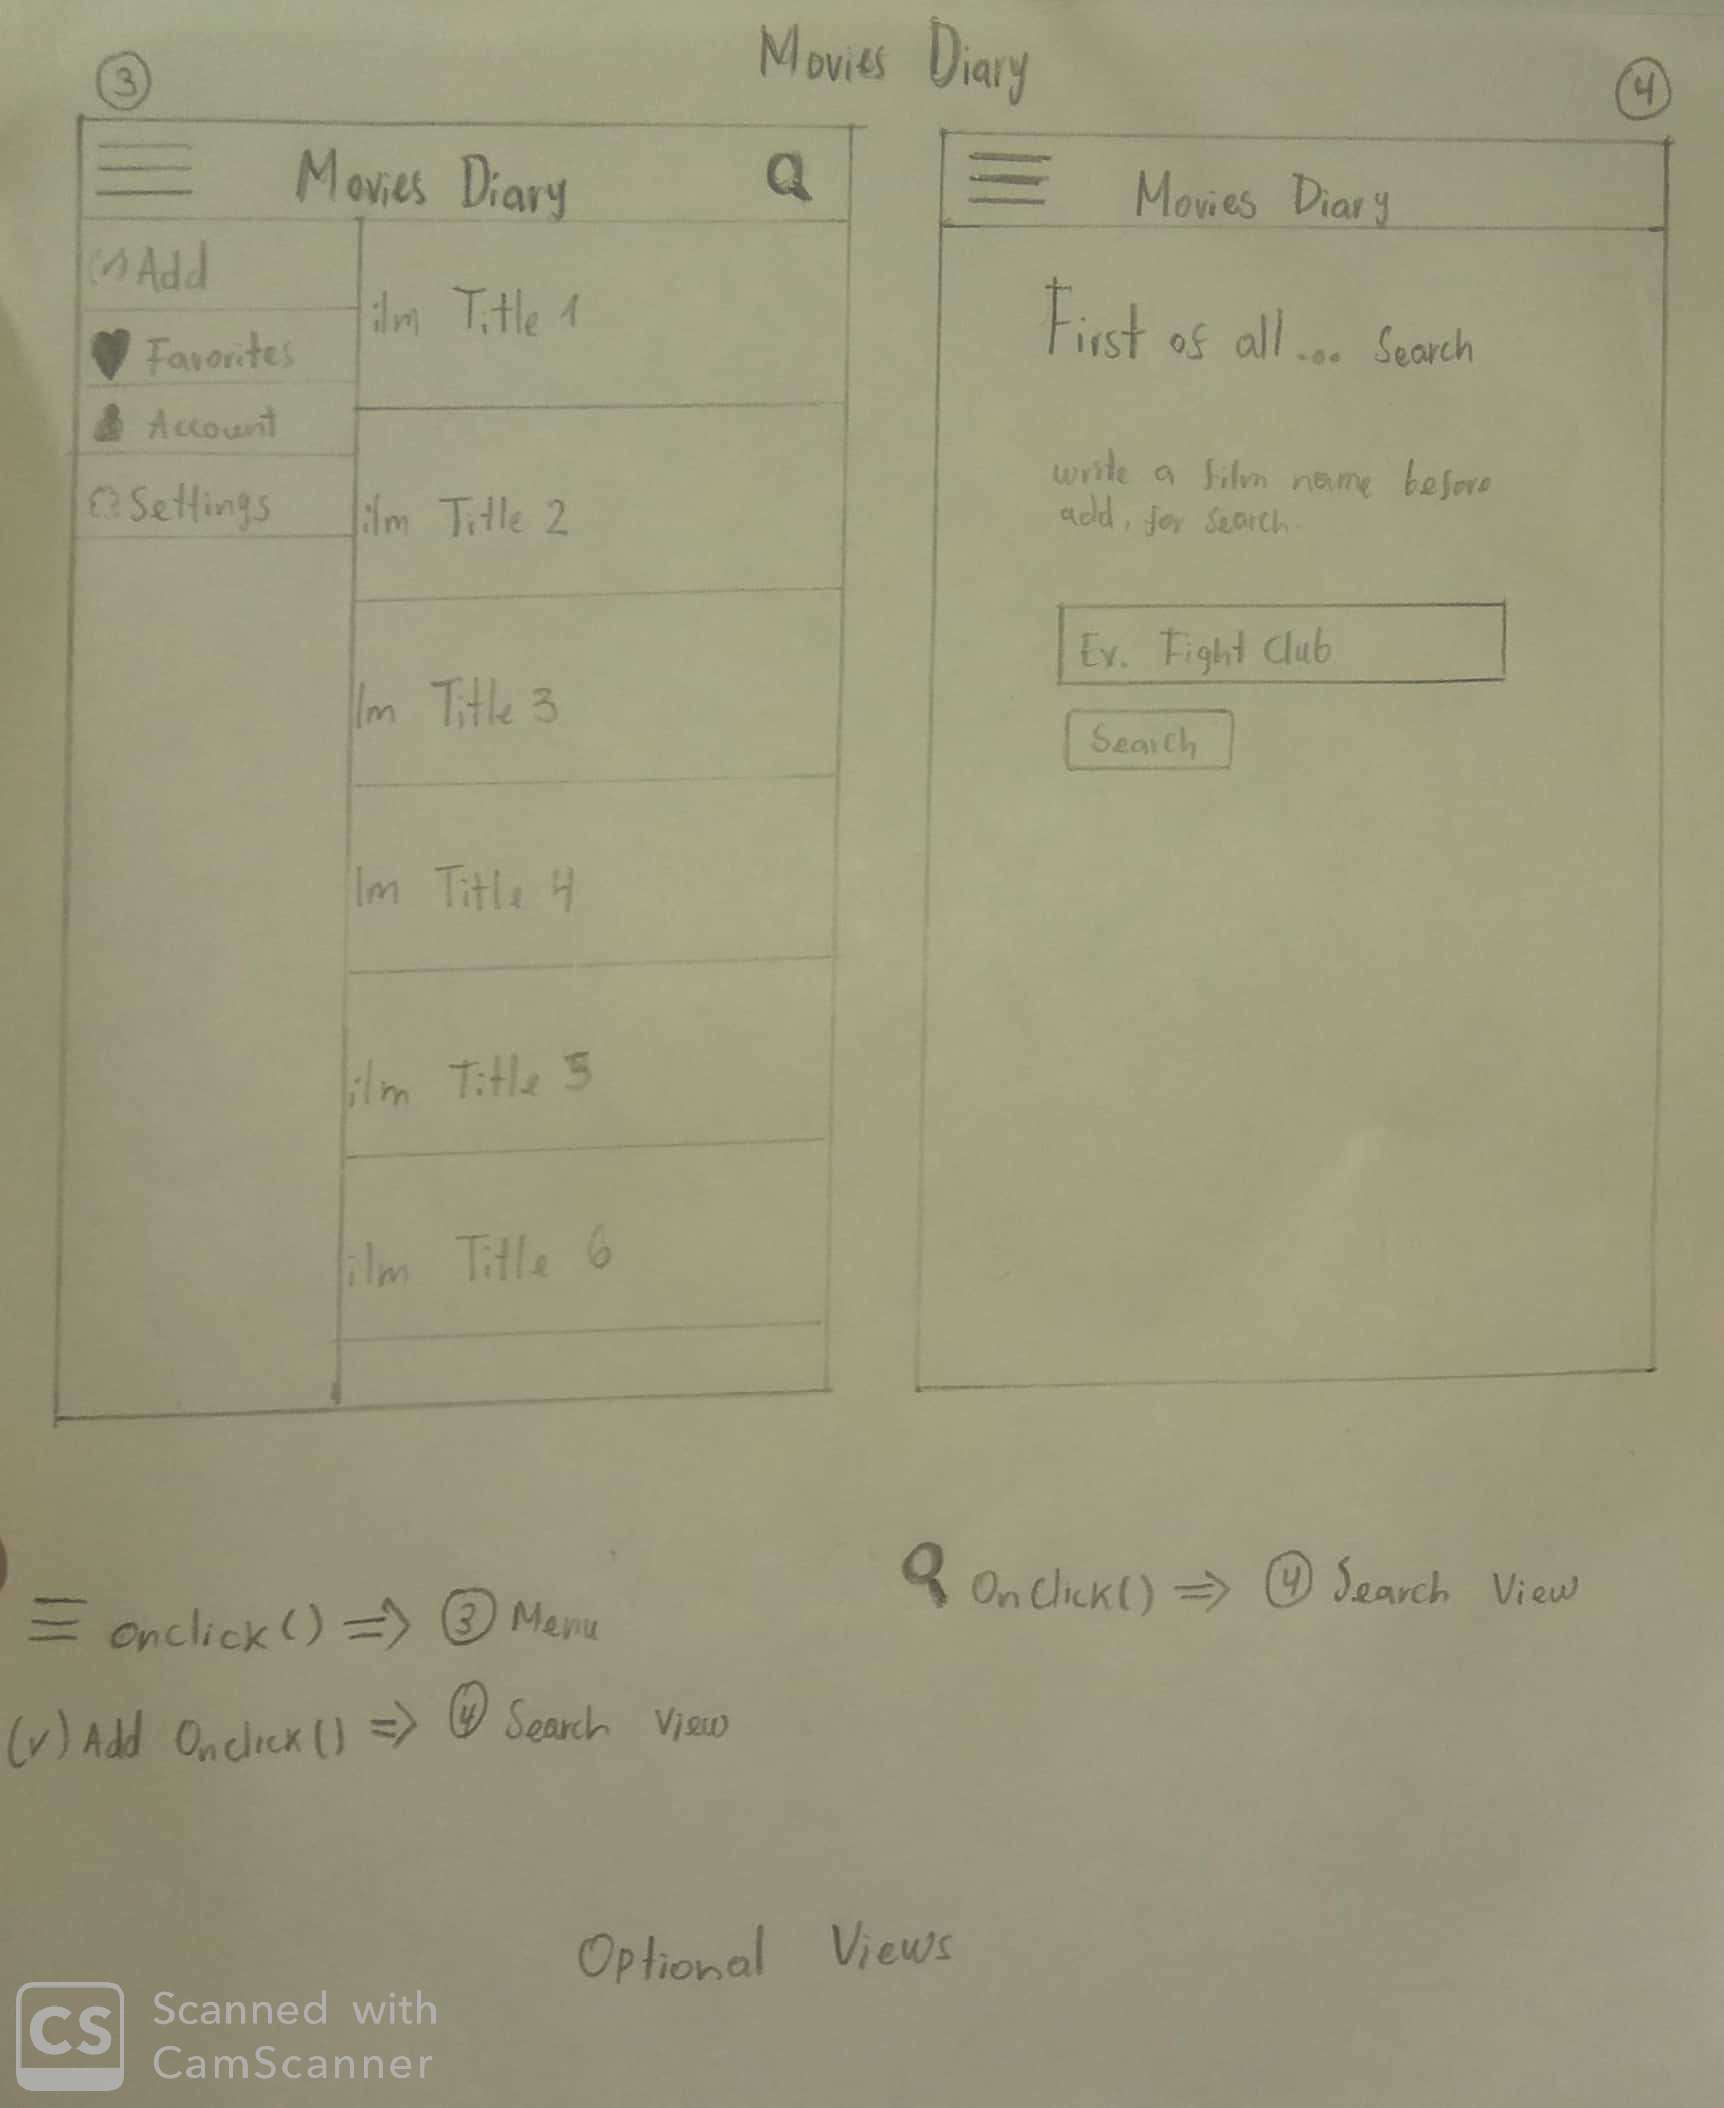 Movies Diary
3
4
Movies Diary
Add
Favorites
Account
Settings
ilm Title 1
ilm Title 2
lm Title 3
lm Title 4
ilm Title 5
ilm Title 6
Movies Diary
First of all... Search
write a film name before
add, for search.
Ex. Fight Club
Search
onclick() => 3 Menu
(v) Add Onclick() => 4 Search View
OnClick() => 4 Search View
Optional Views
CS
Scanned with
CamScanner